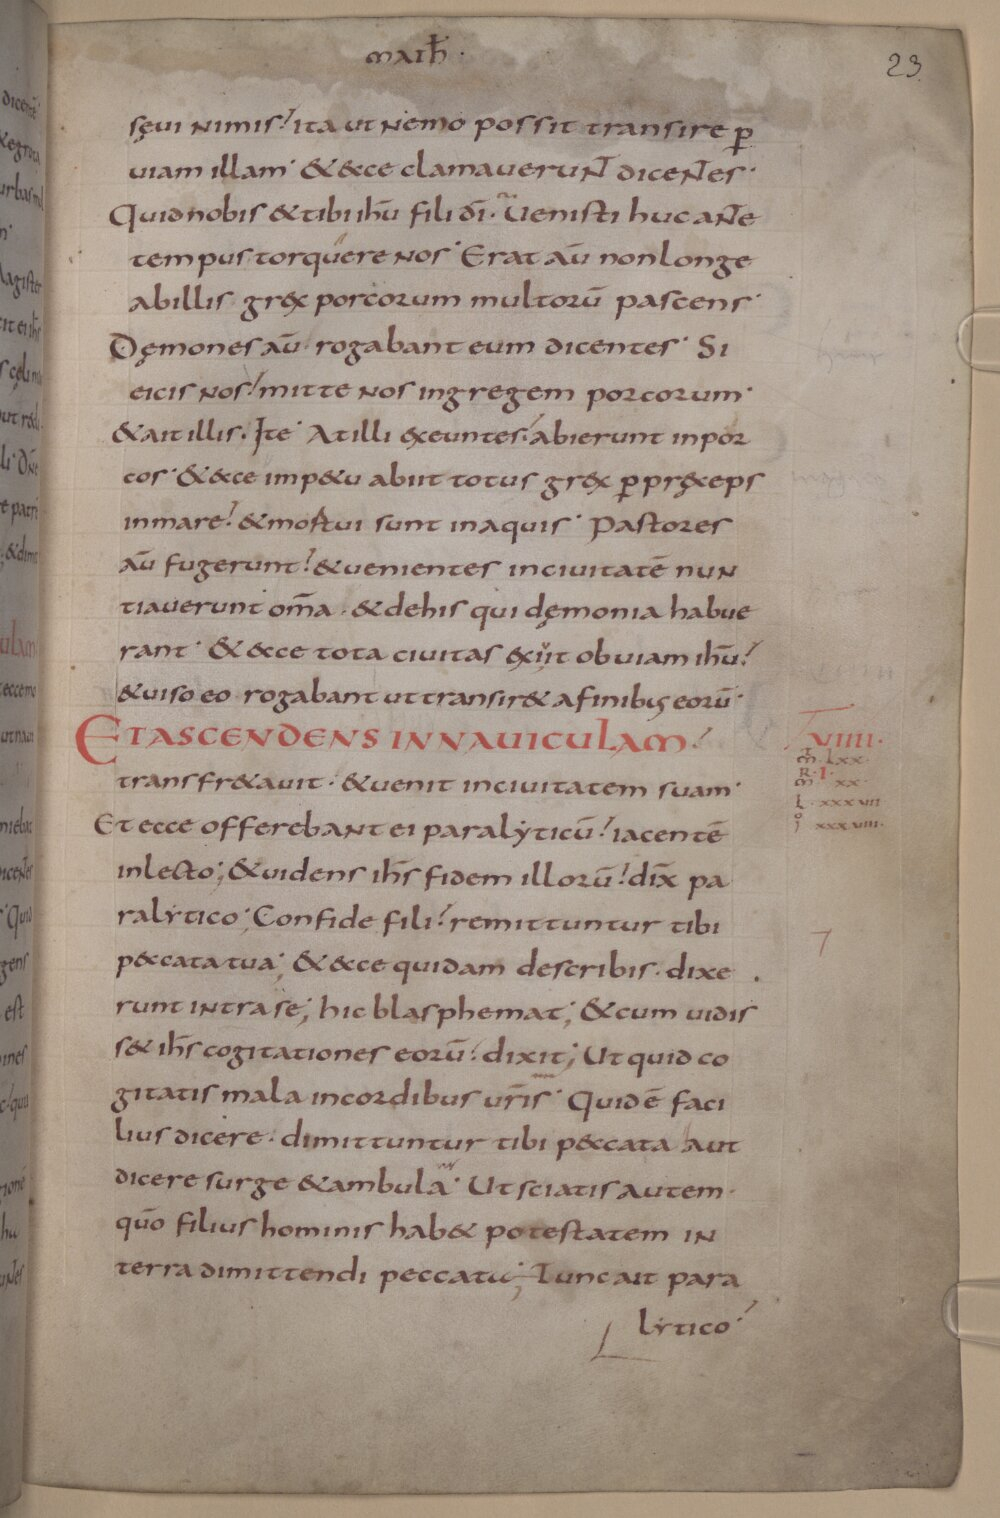 math̄ ·
23
sęui nimis? ita ut nemo possit transire ꝑ
uiam illam · & &ce clamauerun̄t dicen̄tes ·
Quid nobis & tibi ih̄u fili dī · Venisti huc an̄te
tempus torquere nos · Erat aū non longe
ab illis grex porcorum multorū pascens ·
Dęmones aū rogabant eum dicentes · Si
eicis nos? mitte nos in gregem porcorum ·
& ait illis · Ite · At illi exeuntes? abierunt in por
cos · & &ce imp&u abiit totus grex ꝑ pręceps
in mare? & mortui sunt in aquis · Pastores
aū fugerunt? & uenientes in ciuitatē nun
tiauerunt om̄a · & de his qui dęmonia habue
rant · & &ce tota ciuitas exiit obuiam ih̄u?
& uiso eo rogabant ut transir& a finibus eorū ·
ET ASCENDENS IN NAUICULAM?
transfr&auit · & uenit in ciuitatem suam ·
Et ecce offerebant ei paralyticū? iacentē
in lecto; & uidens ih̄s fidem illorū? dix̄ pa
ralytico; Confide fili? remittuntur tibi
peccata tua; & &ce quidam de scribis · dixe
runt intra se; hic blasphemat; & cum uidis
s& ih̄s cogitationes eorū? dixit; Ut quid co
gitatis mala in cordibus ur̄is · Quid ē faci
lius dicere · dimittuntur tibi peccata aut
dicere surge & ambula · Ut sciatis autem ·
qūo filius hominis hab& potestatem in
terra dimittendi peccata; Tunc ait para
lytico?
VIIII ·
m̄ · lxx ·
R · I ·
m̄ xx ·
l · xxxvii
io xxxviiii ·